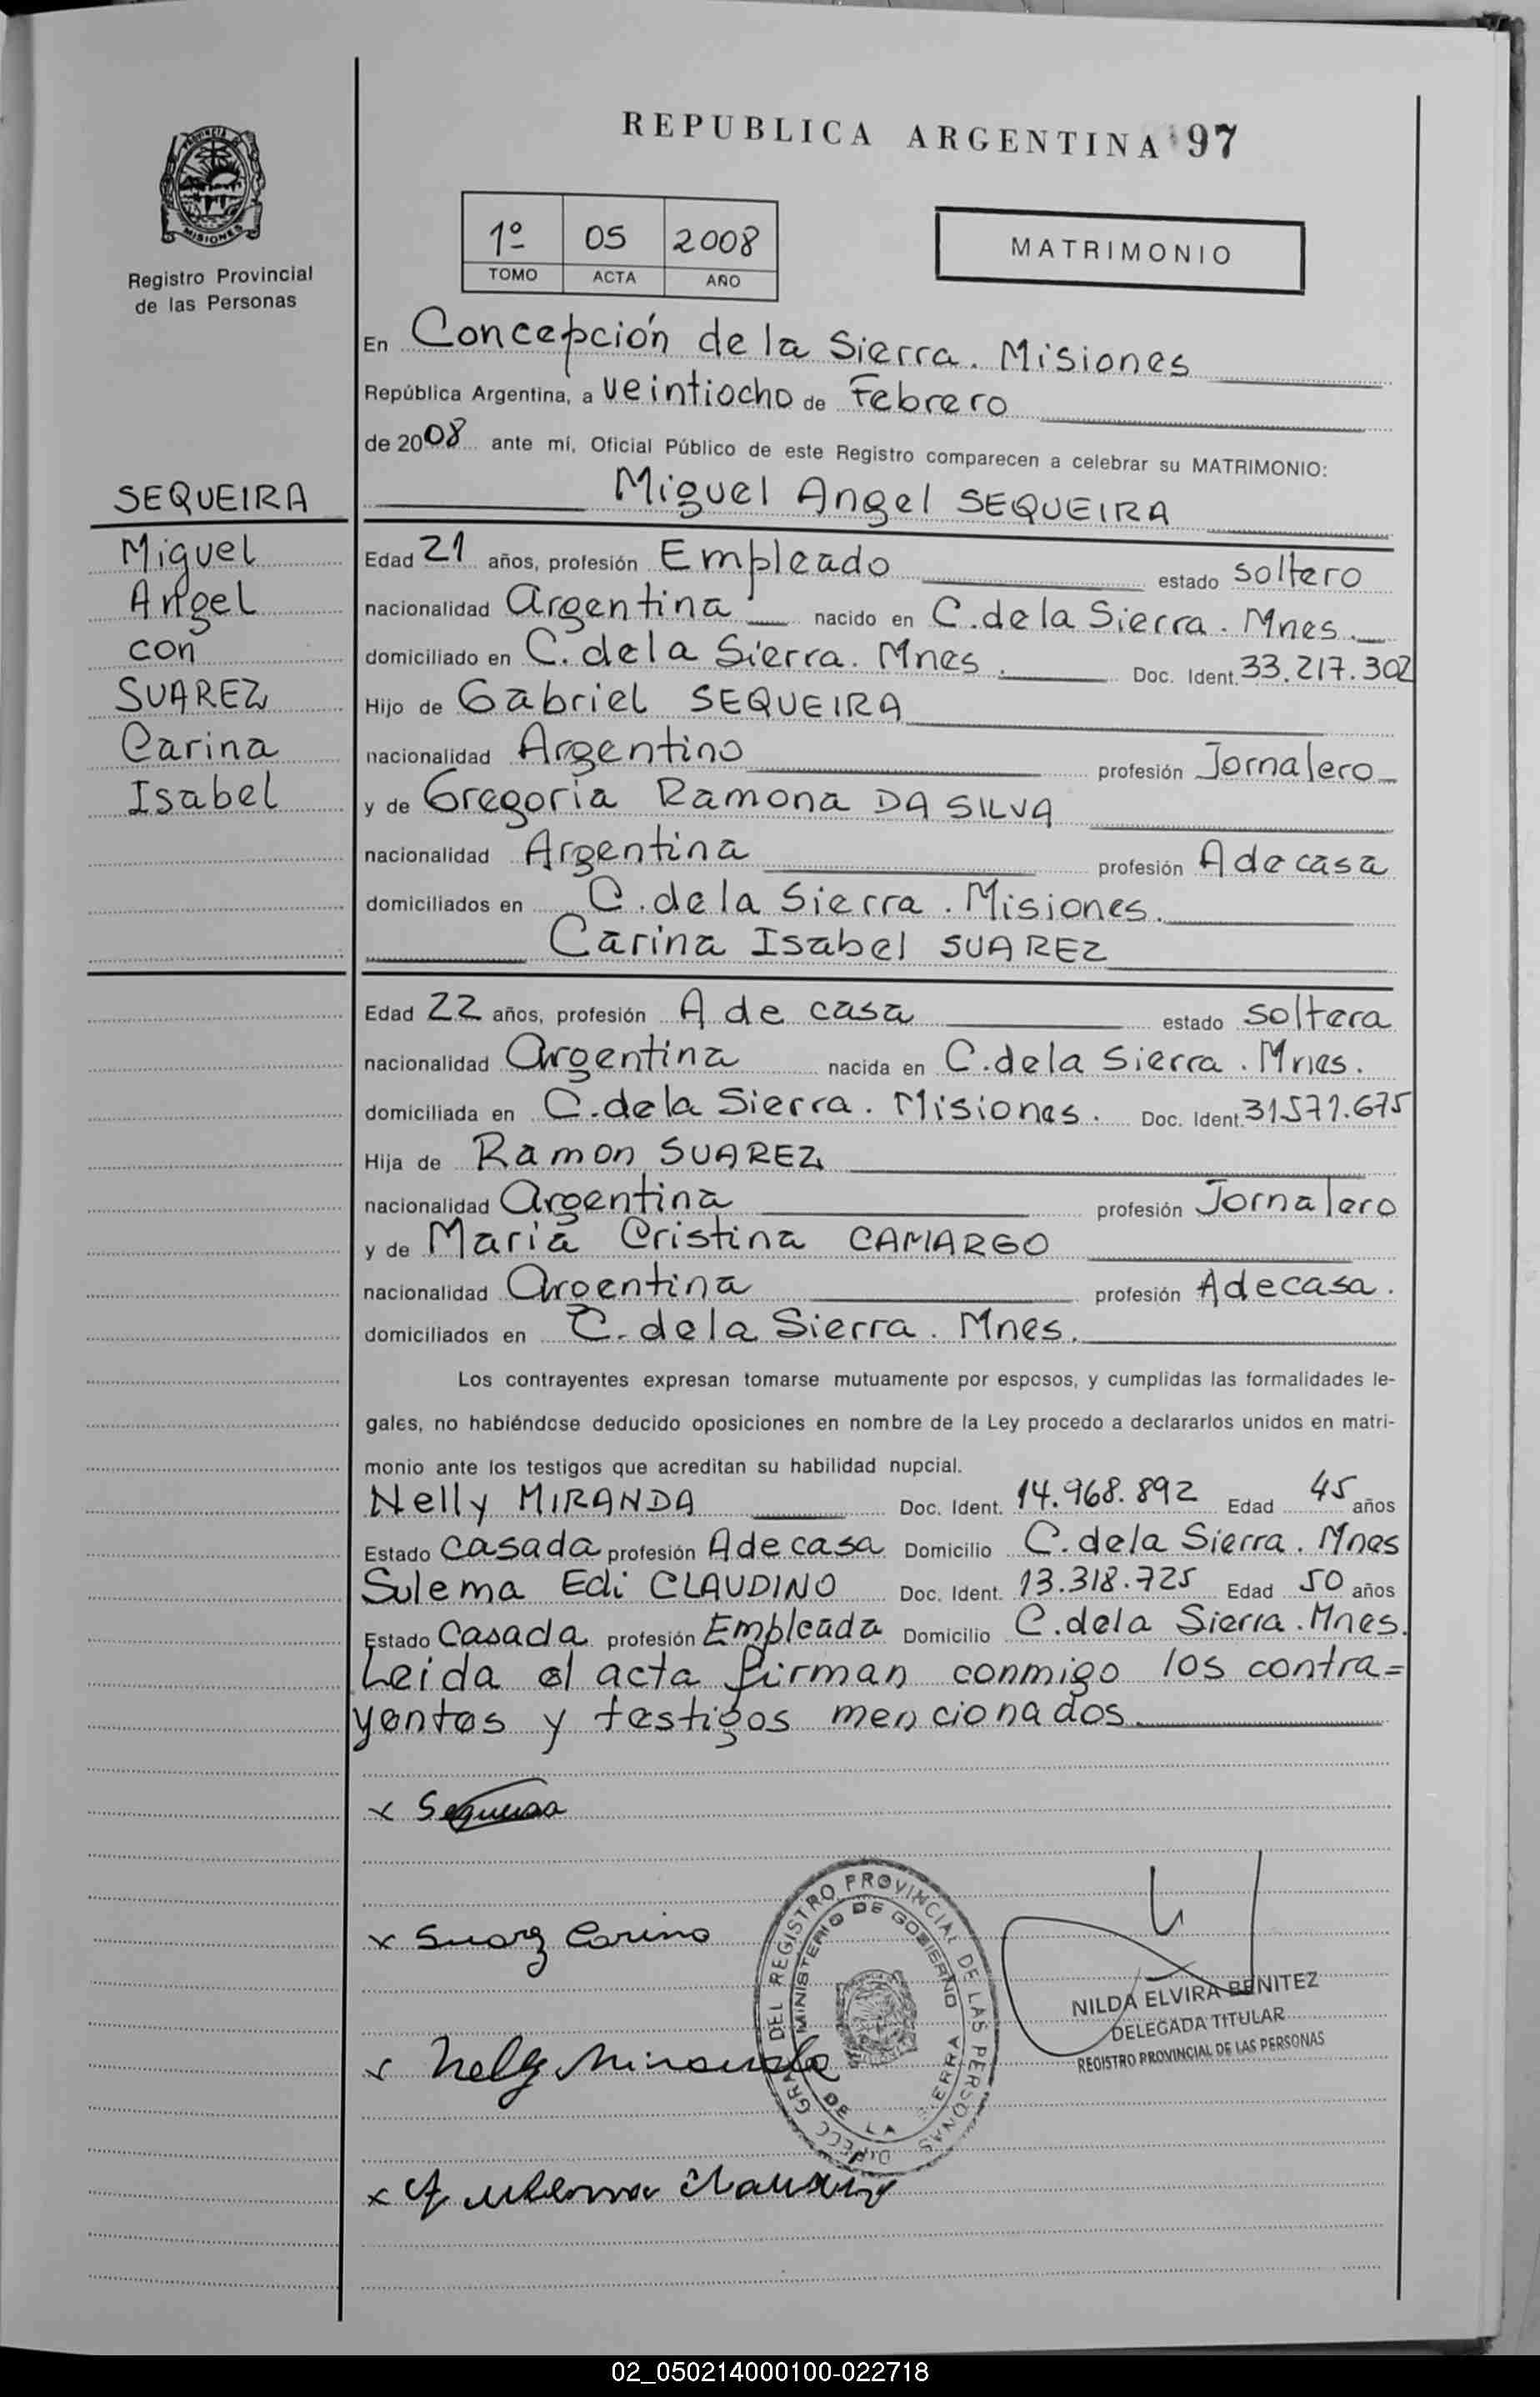 REPUBLICA ARGENTINA 97
PROVINCIA D MISIONES
Registro Provincial
de las Personas
1º 05 2008
TOMO ACTA AÑO
MATRIMONIO
En Concepción de la Sierra. Misiones
República Argentina, a veintiocho de Febrero
de 2008 ante mí, Oficial Público de este Registro comparecen a celebrar su MATRIMONIO:
Miguel Angel SEQUEIRA
SEQUEIRA
Miguel
Angel
con
SUAREZ
Carina
Isabel
Edad 21 años, profesión Empleado estado soltero
nacionalidad Argentina nacido en C. de la Sierra. Mnes.
domiciliado en C. de la Sierra. Mnes. Doc. Ident. 33.217.302
Hijo de Gabriel SEQUEIRA
nacionalidad Argentino profesión Jornalero
y de Gregoria Ramona DA SILVA
nacionalidad Argentina profesión A de casa
domiciliados en C. de la Sierra. Misiones.
Carina Isabel SUAREZ
Edad 22 años, profesión A de casa estado soltera
nacionalidad Argentina nacida en C. de la Sierra. Mnes.
domiciliada en C. de la Sierra. Misiones. Doc. Ident. 31.571.675
Hija de Ramon SUAREZ
nacionalidad Argentina profesión Jornalero
y de Maria Cristina CAMARGO
nacionalidad Argentina profesión A de casa.
domiciliados en C. de la Sierra. Mnes.
Los contrayentes expresan tomarse mutuamente por esposos, y cumplidas las formalidades le-
gales, no habiéndose deducido oposiciones en nombre de la Ley procedo a declararlos unidos en matri-
monio ante los testigos que acreditan su habilidad nupcial.
Nelly MIRANDA Doc. Ident. 14.968.892 Edad 45 años
Estado Casada profesión A de casa Domicilio C. de la Sierra. Mnes
Sulema Edi CLAUDINO Doc. Ident. 13.318.725 Edad 50 años
Estado Casada profesión Empleada Domicilio C. de la Sierra. Mnes.
Leida el acta firman conmigo los contra=
yentes y testigos mencionados.
x Sequeira
x Suarez Carina
x Nelly Miranda
DIRECC GRAL DEL REGISTRO PROVINCIAL DE LAS PERSONAS
MINISTERIO DE GOBIERNO
DE LA SIERRA
NILDA ELVIRA BENITEZ
DELEGADA TITULAR
REGISTRO PROVINCIAL DE LAS PERSONAS
02_050214000100-022718